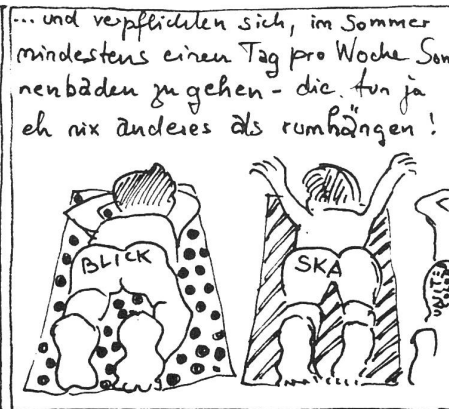 ... und verpflichten sich, im Sommer
mindestens einen Tag pro Woche Son
nenbaden zu gehen - die tun ja
eh nix anderes als rumhängen!
BLICK
SKA